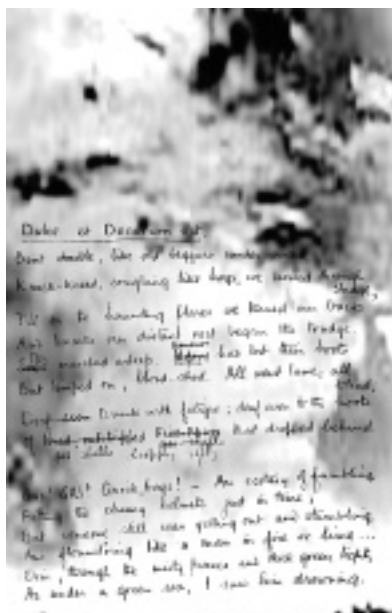 Dulce et Decorum est.
Bent double, like old beggars under sacks,
Knock-kneed, coughing like hags, we cursed through
sludge,
Till on the haunting flares we turned our backs
And towards our distant rest began to trudge.
marched asleep. Many had lost their boots
But limped on, blood-shod. All went lame; all
blind;
Drunk with fatigue; deaf even to the hoots
Of that dropped behind
gas-shells
Gas! GAS! Quick, boys! — An ecstasy of fumbling
Fitting the clumsy helmets just in time;
But someone still was yelling out and stumbling
And floundering like a man in fire or lime...
Dim, through the misty panes and thick green light,
As under a green sea, I saw him drowning.